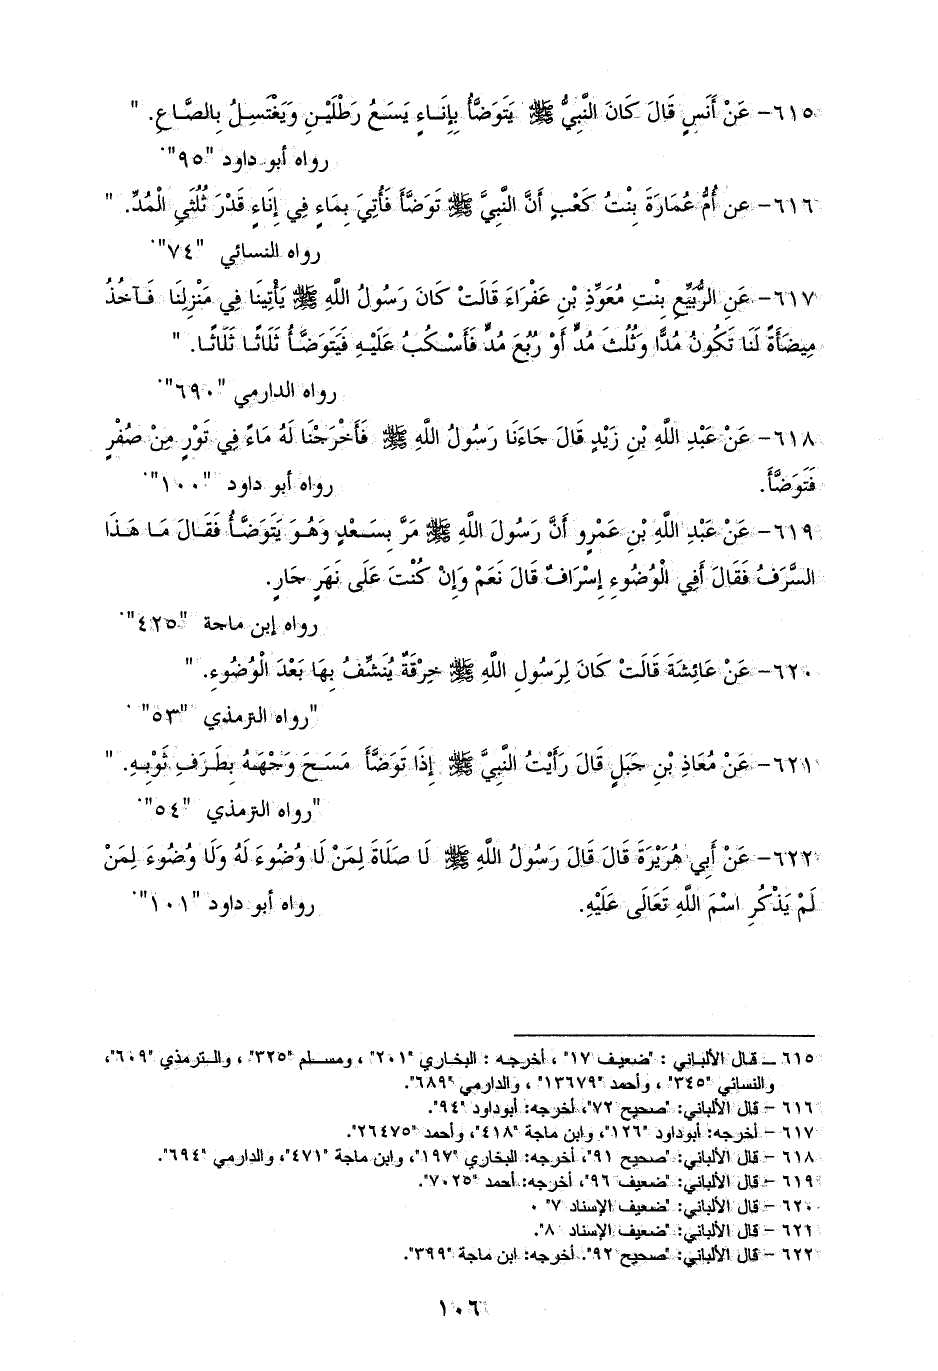 ٦١٥- عَنْ أَنَسٍ قَالَ كَانَ النَّبِيُّ ﷺ يَتَوَضَّأُ بِإِنَاءٍ يَسَعُ رَطْلَيْنِ وَيَغْتَسِلُ بِالصَّاعِ. "
رواه أبو داود "٩٥".
٦١٦- عن أُمُّ عُمَارَةَ بِنْتُ كَعْبٍ أَنَّ النَّبِيَّ ﷺ تَوَضَّأَ فَأُتِيَ بِمَاءٍ فِي إِنَاءٍ قَدْرَ ثُلُثَيِ الْمُدِّ. "
رواه النسائي "٧٤".
٦١٧- عَنِ الرُّبَيِّعِ بِنْتِ مُعَوِّذِ بْنِ عَفْرَاءَ قَالَتْ كَانَ رَسُولُ اللَّهِ ﷺ يَأْتِينَا فِي مَنْزِلِنَا فَآخُذُ
مِيضَأَةً لَنَا تَكُونُ مُدًّا وَثُلُثَ مُدٍّ أَوْ رُبُعَ مُدٍّ فَأَسْكُبُ عَلَيْهِ فَيَتَوَضَّأُ ثَلَاثًا ثَلَاثًا. "
رواه الدارمي "٦٩٠".
٦١٨- عَنْ عَبْدِ اللَّهِ بْنِ زَيْدٍ قَالَ جَاءَنَا رَسُولُ اللَّهِ ﷺ فَأَخْرَجْنَا لَهُ مَاءً فِي تَوْرٍ مِنْ صُفْرٍ
فَتَوَضَّأَ. رواه أبو داود "١٠٠".
٦١٩- عَنْ عَبْدِ اللَّهِ بْنِ عَمْرٍو أَنَّ رَسُولَ اللَّهِ ﷺ مَرَّ بِسَعْدٍ وَهُوَ يَتَوَضَّأُ فَقَالَ مَا هَذَا
السَّرَفُ فَقَالَ أَفِي الْوُضُوءِ إِسْرَافٌ قَالَ نَعَمْ وَإِنْ كُنْتَ عَلَى نَهَرٍ جَارٍ.
رواه إبن ماجة "٤٢٥".
٦٢٠- عَنْ عَائِشَةَ قَالَتْ كَانَ لِرَسُولِ اللَّهِ ﷺ خِرْقَةٌ يُنَشِّفُ بِهَا بَعْدَ الْوُضُوءِ. "
"رواه الترمذي "٥٣".
٦٢١- عَنْ مُعَاذِ بْنِ جَبَلٍ قَالَ رَأَيْتُ النَّبِيَّ ﷺ إِذَا تَوَضَّأَ مَسَحَ وَجْهَهُ بِطَرَفِ ثَوْبِهِ. "
"رواه الترمذي "٥٤".
٦٢٢- عَنْ أَبِي هُرَيْرَةَ قَالَ قَالَ رَسُولُ اللَّهِ ﷺ لَا صَلَاةَ لِمَنْ لَا وُضُوءَ لَهُ وَلَا وُضُوءَ لِمَنْ
لَمْ يَذْكُرِ اسْمَ اللَّهِ تَعَالَى عَلَيْهِ. رواه أبو داود "١٠١".
٦١٥ – قال الألباني : "ضعيف ١٧" ، أخرجه : البخاري "٢٠١" ، ومسلم "٣٢٥" ، والترمذي "٦٠٩"،
والنسائي "٣٤٥" ، وأحمد "١٣٦٧٩" ، والدارمي "٦٨٩".
٦١٦ – قال الألباني: "صحيح ٧٢"، أخرجه: أبوداود "٩٤".
٦١٧ – أخرجه: أبوداود "١٢٦"، وابن ماجة "٤١٨"، وأحمد "٢٦٤٧٥".
٦١٨ – قال الألباني: "صحيح ٩١"، أخرجه: البخاري "١٩٧"، وابن ماجة "٤٧١"، والدارمي "٦٩٤".
٦١٩ – قال الألباني: "ضعيف ٩٦"، أخرجه: أحمد "٧٠٢٥".
٦٢٠ – قال الألباني: "ضعيف الإسناد ٧" .
٦٢١ – قال الألباني: "ضعيف الإسناد ٨".
٦٢٢ – قال الألباني: "صحيح ٩٢". أخرجه: ابن ماجة "٣٩٩".
١٠٦